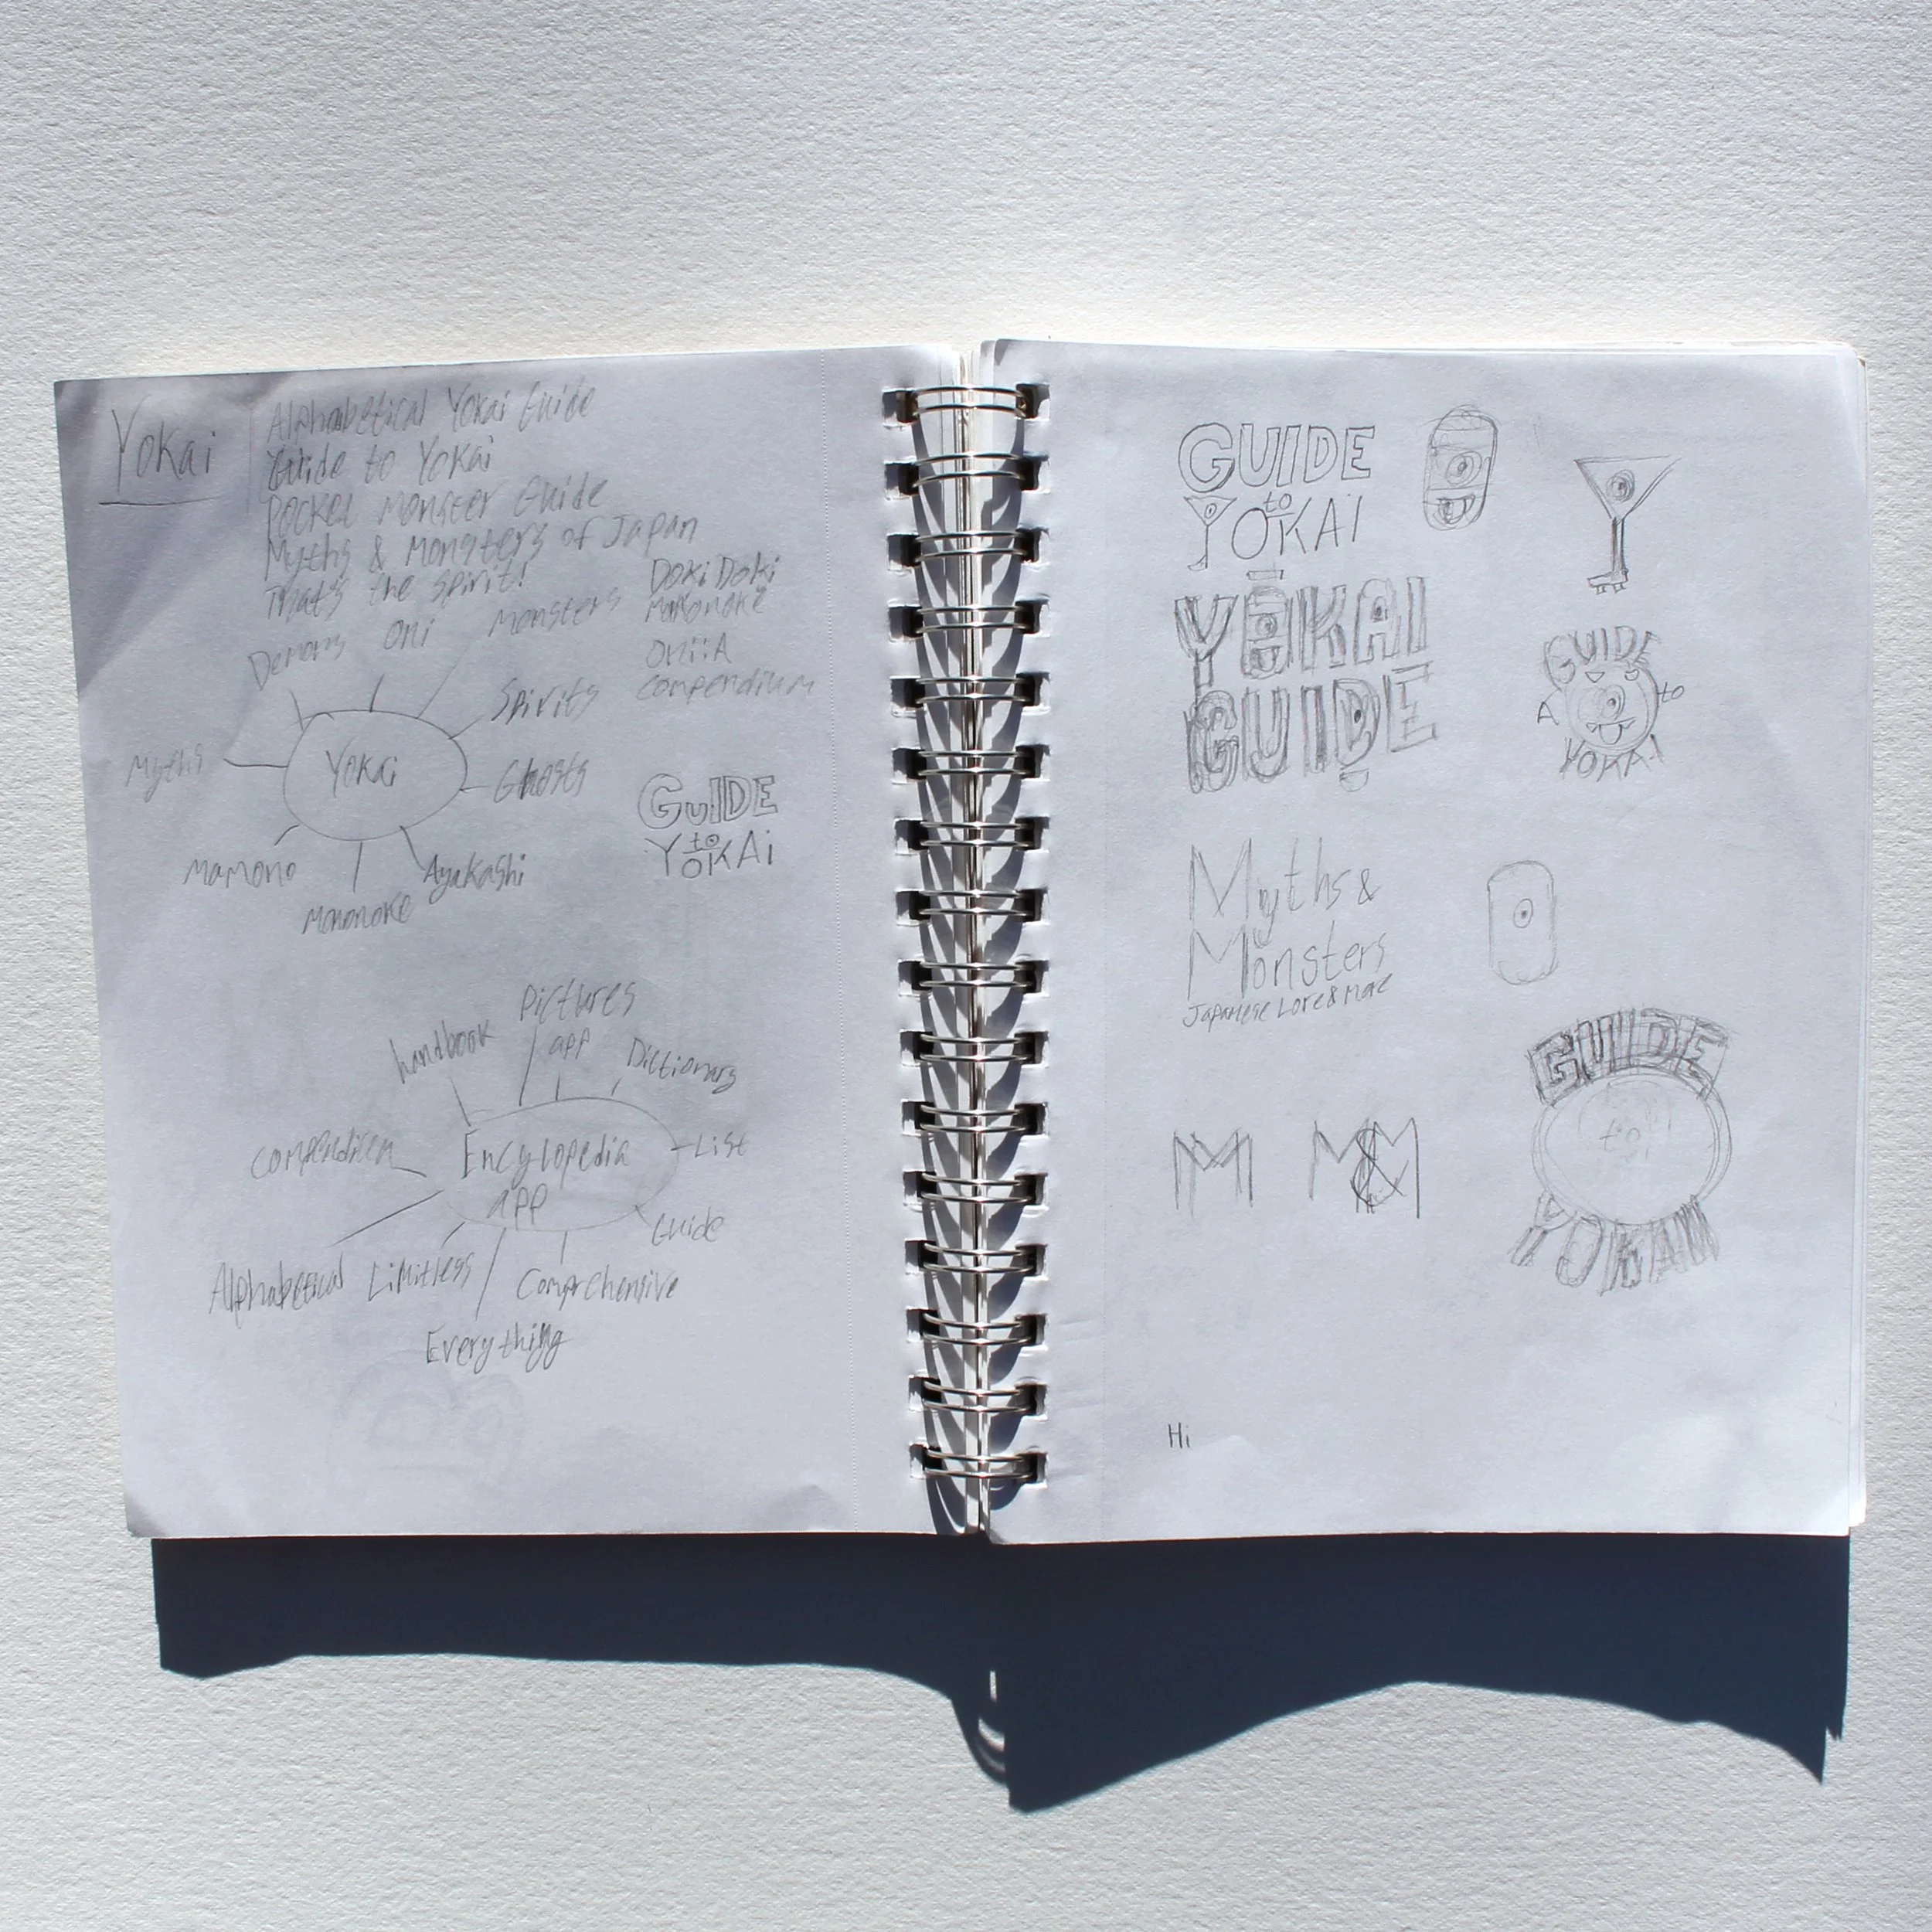 Yokai
Alphabetical Yokai Guide
Guide to Yokai
Pocket Monster Guide
Myths & Monsters of Japan
That's the spirit!
Doki Doki
Mononoke
Oni:A
Compendium
Demons
Oni
Monsters
Spirits
Myths
Yokai
Ghosts
Mamono
Mononoke
Ayakashi
GUIDE
to
YOKAi
handbook
Pictures
app
Dictionary
Compendium
Encylopedia
app
List
Guide
Alphabetical
Limitless
Comprehensive
Everything
GUIDE
to
YOKAI
YOKAI
GUIDE
GUIDE
A
to
YOKAI
Myths &
Monsters
Japanese Lore & More
GUIDE
to
YOKAI
M
M&M
Hi